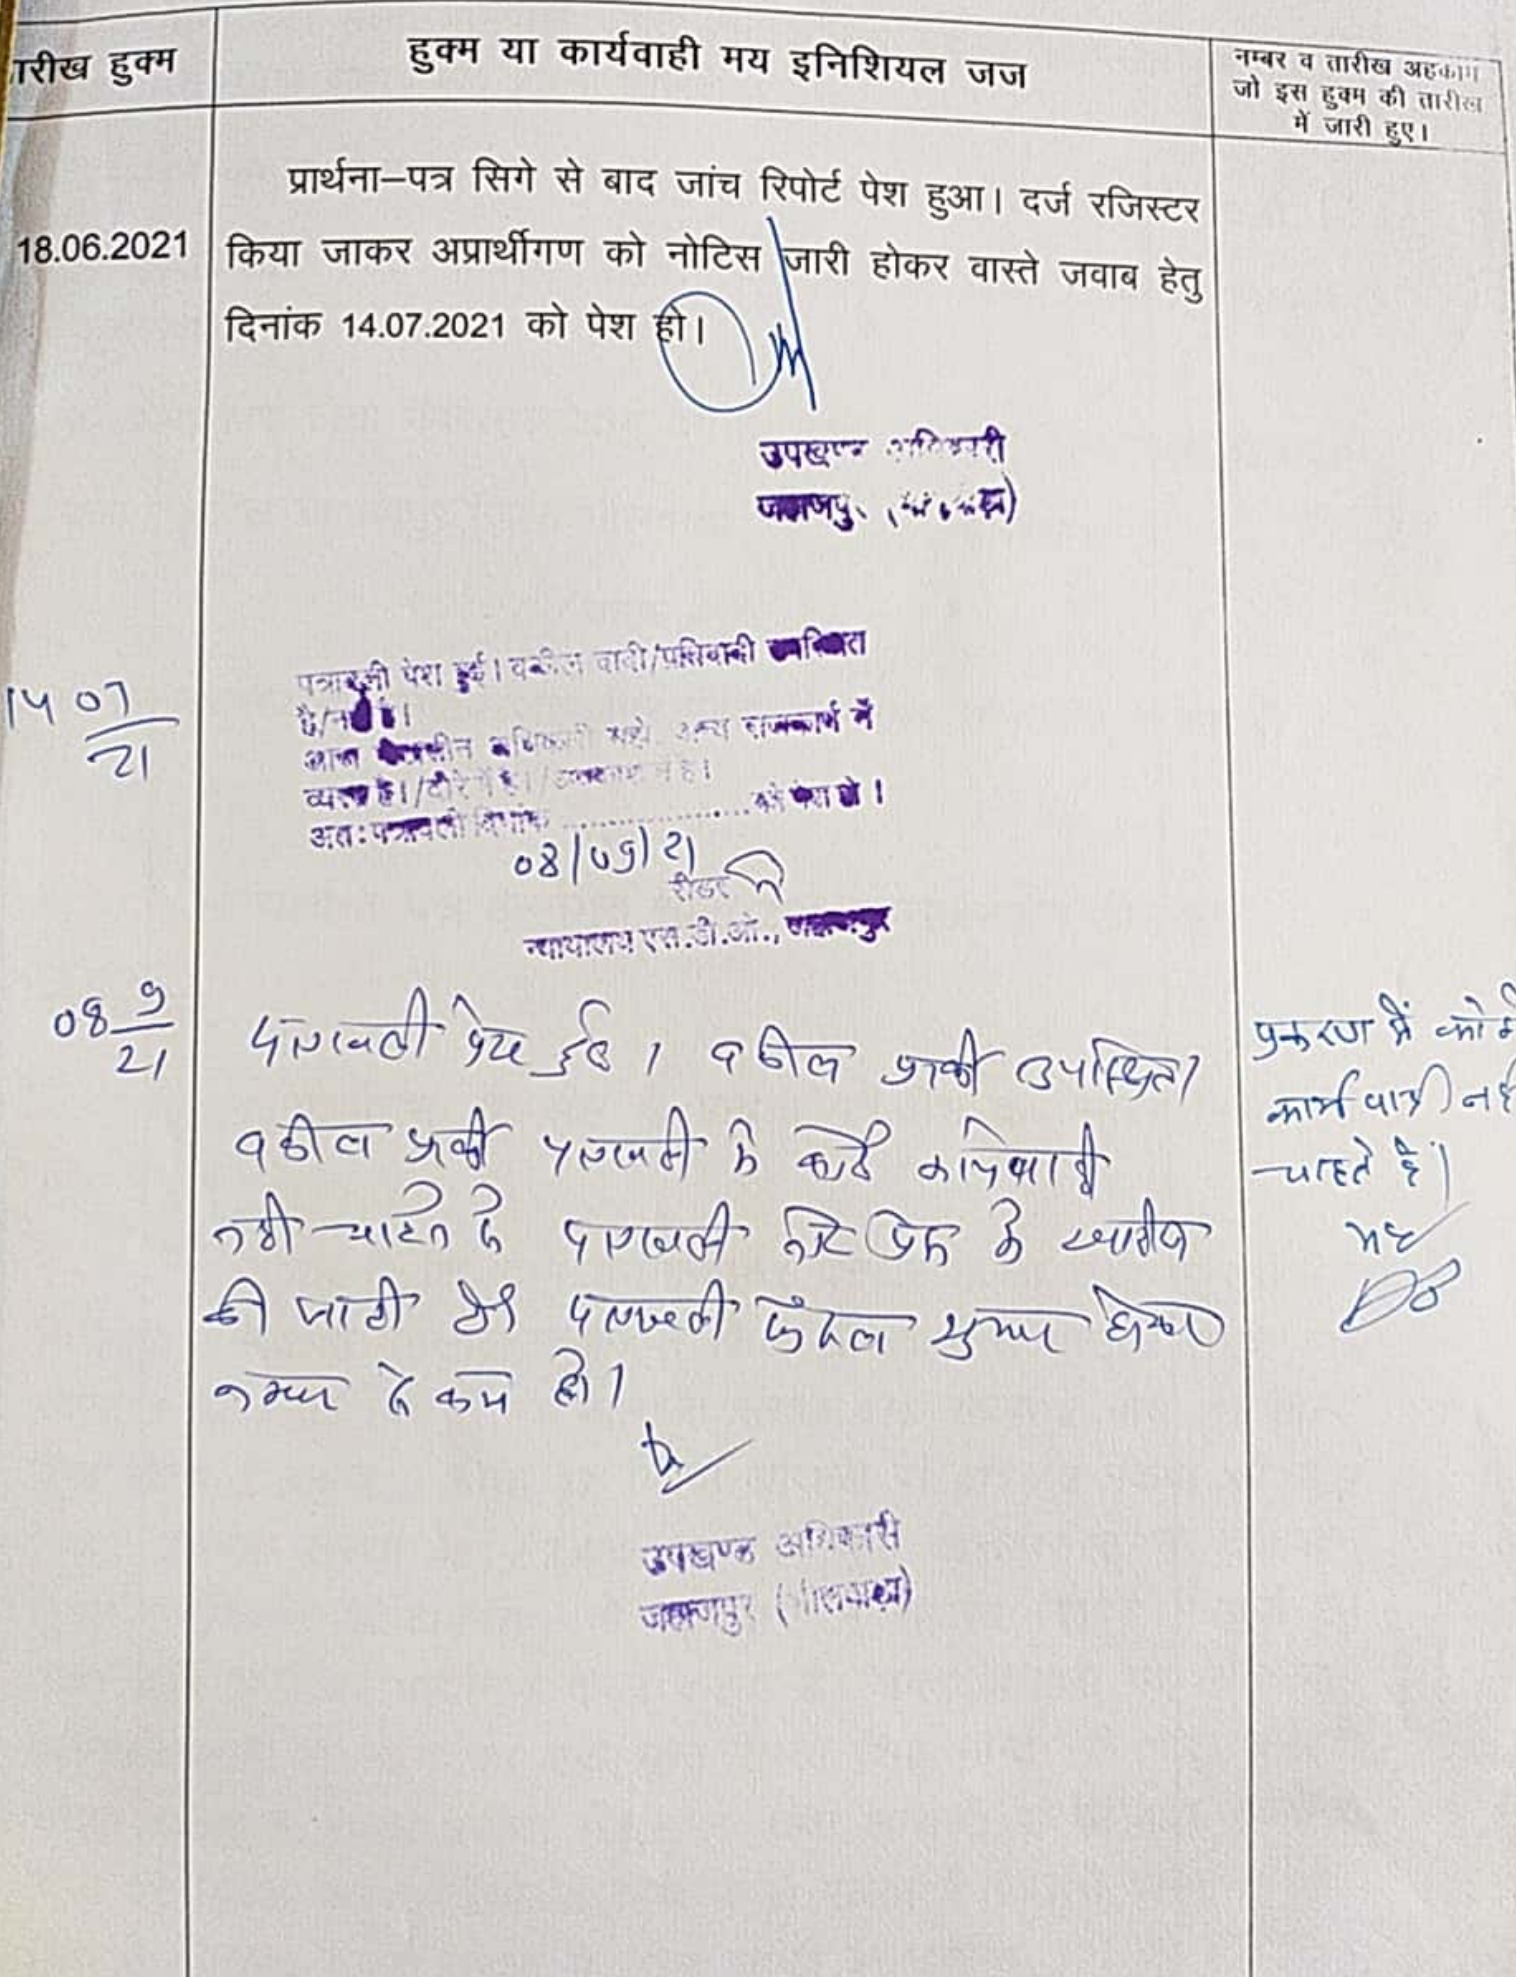 तारीख हुक्म
हुक्म या कार्यवाही मय इनिशियल जज
नम्बर व तारीख अहकाम
जो इस हुक्म की तारीख
में जारी हुए।
18.06.2021
प्रार्थना–पत्र सिगे से बाद जांच रिपोर्ट पेश हुआ। दर्ज रजिस्टर
किया जाकर अप्रार्थीगण को नोटिस जारी होकर वास्ते जवाब हेतु
दिनांक 14.07.2021 को पेश हो।
उपखण्ड अधिकारी
14 07
21
पत्रावली पेश हुई। वकील वादी/प्रतिवादी उपस्थित
है/नहीं है।
आज अधिकारी अन्य राजकार्य में
व्यस्त है।/दौरे में है।/ में है।
अतः पत्रावली दिनांक .................. को पेश हो।
08/09/21
रीडर
न्यायालय एस.डी.ओ., जहाजपुर
08 9
21
पत्रावली पेश हुई। वकील प्रार्थी उपस्थित।
वकील प्रार्थी पत्रावली में कोई कार्यवाही
नहीं चाहते है पत्रावली
की जाती है। पत्रावली फैसल शुमार होकर
नम्बर से कम हो।
प्रकरण में कोई
कार्यवाही नहीं
चाहते है।
उपखण्ड अधिकारी
जहाजपुर (भीलवाड़ा)